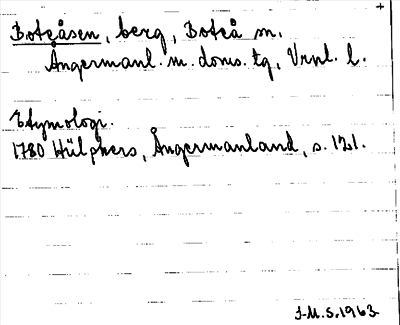 Boteåsen, berg, Boteå sn.
Ångermanl. m. doms. tg, Vrnl. l.
Etymologi.
1780 Hülphers, Ångermanland, s. 121.
J-M.S. 1963